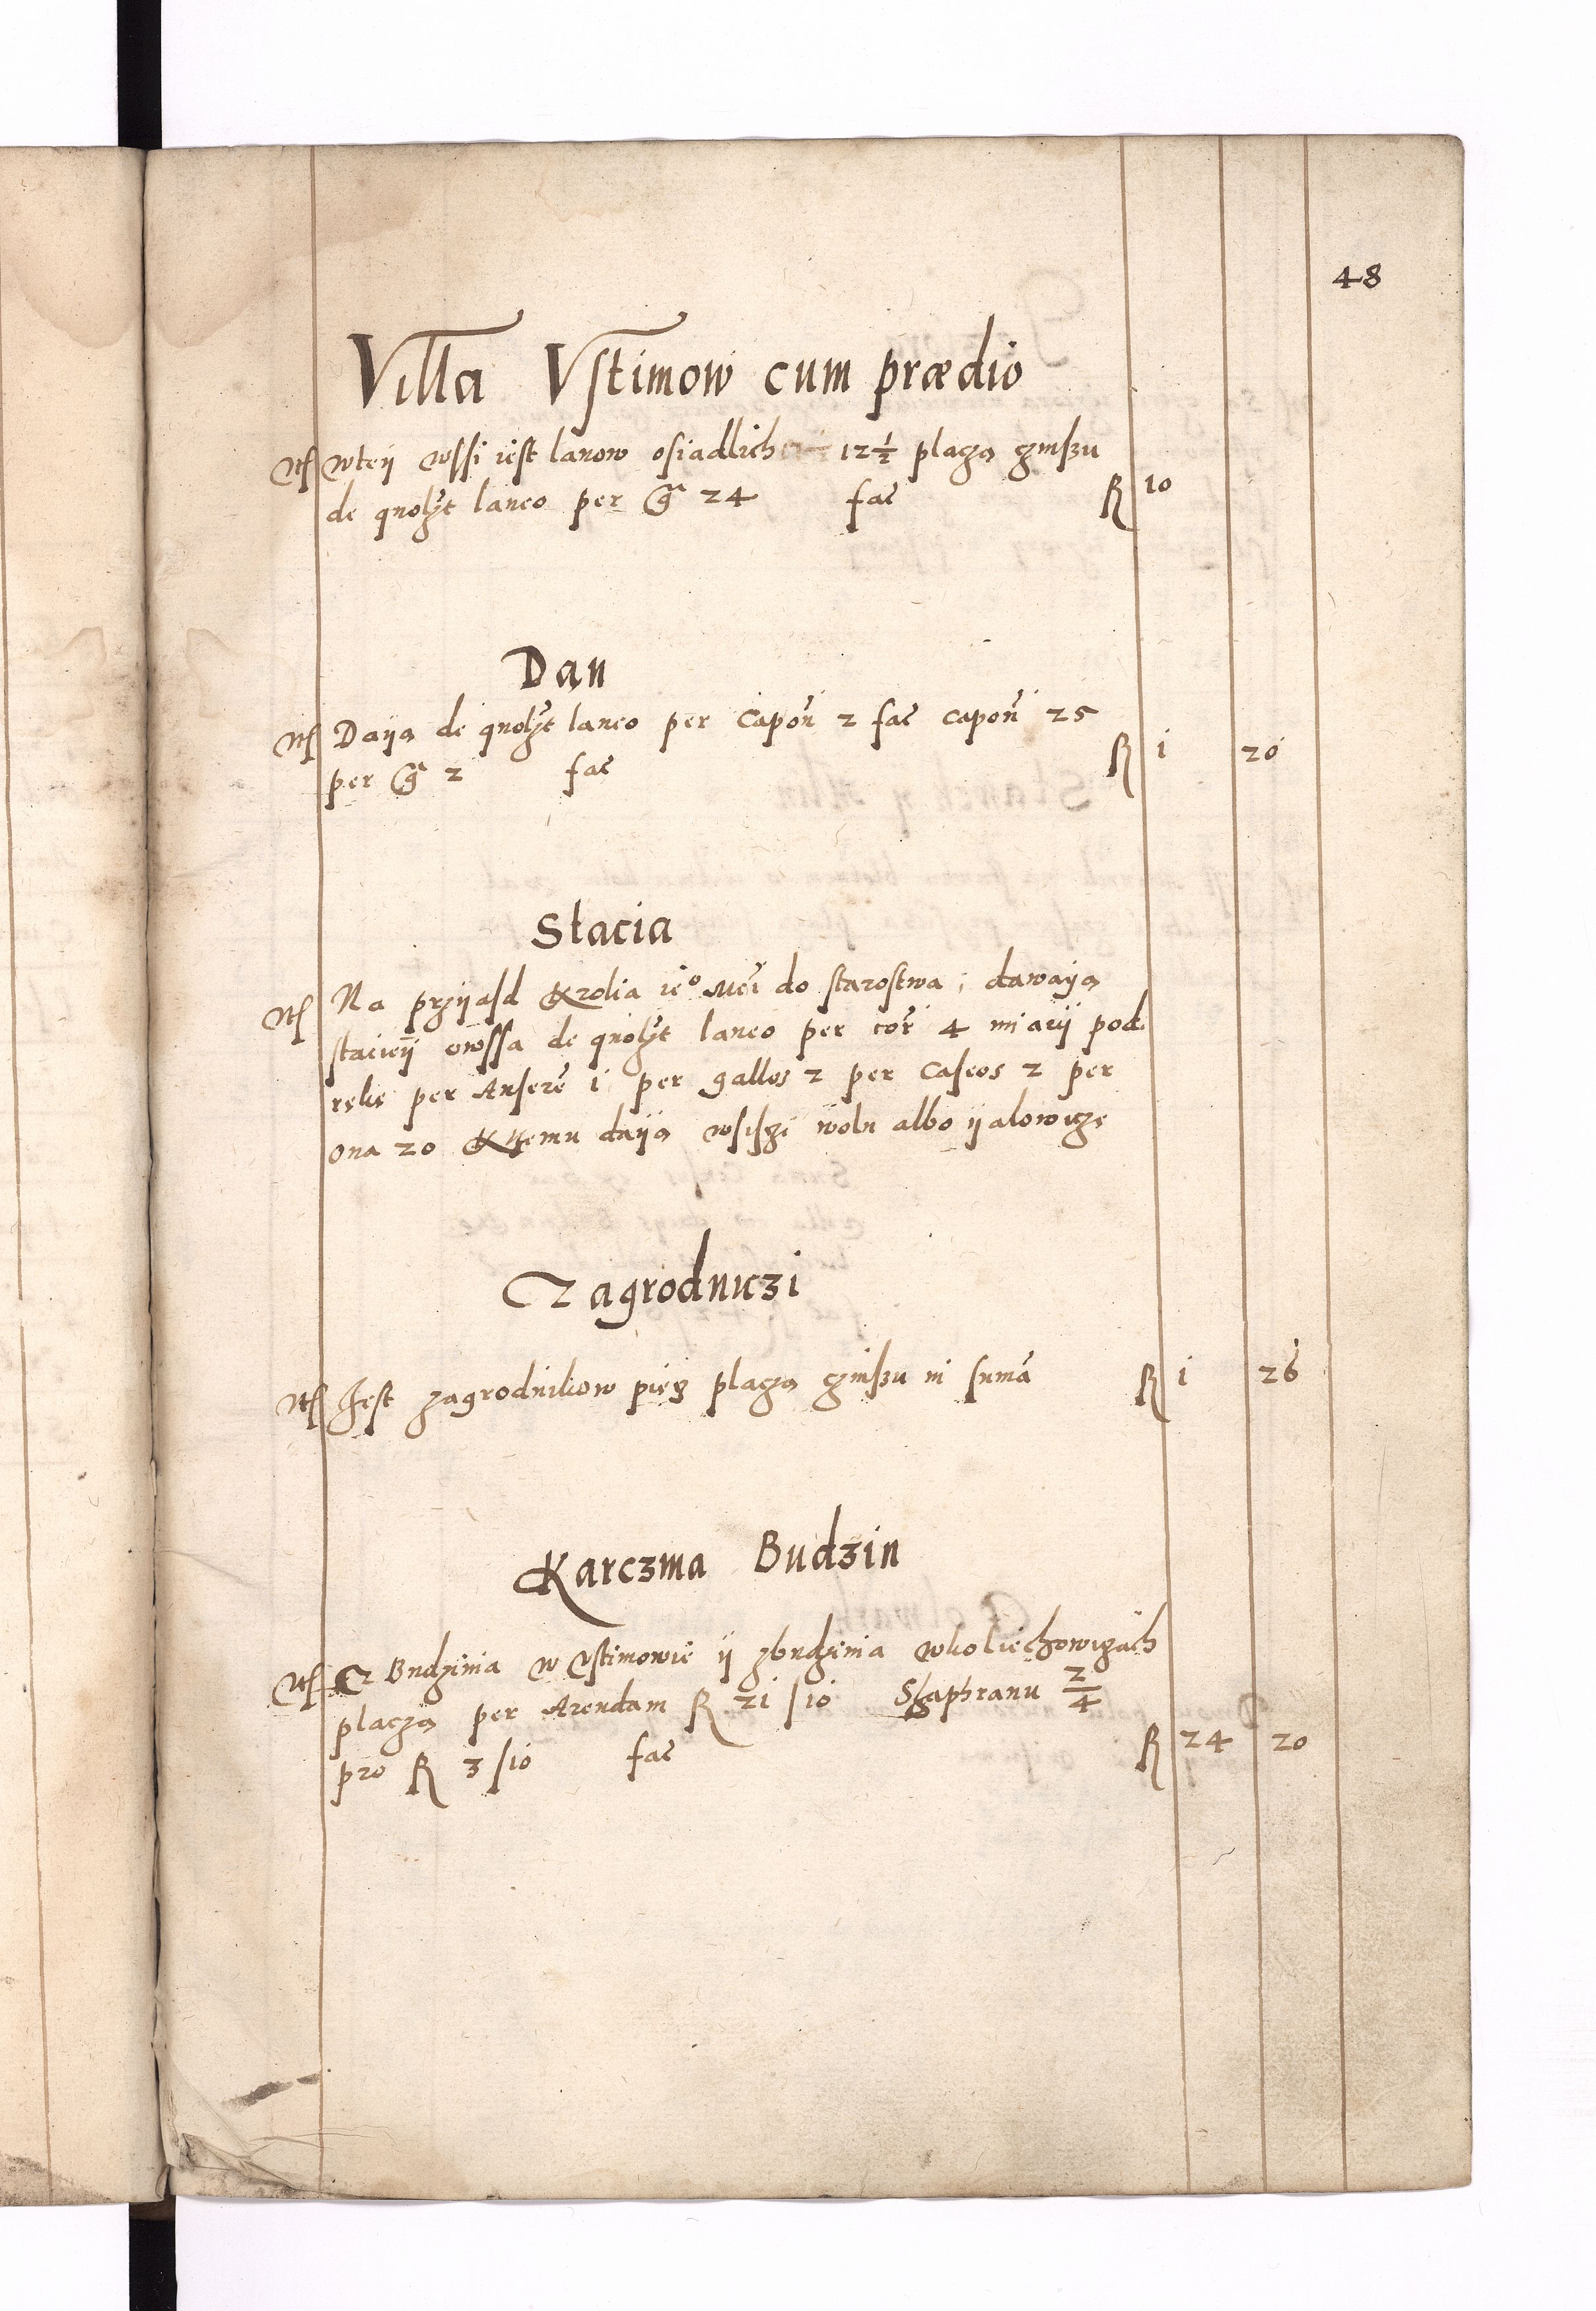 48
Villa Vstimow cum prædio
Itē wteÿ wssi iest lanow osiadlich 12½ placzą czinszu
de quolꝫt laneo per gͬ 24 fac̄ R 10
Dan
Itē Daiją de quolꝫt laneo per Capoń 2 fac̄ capoń 25
per gͬ 2 fac̄ R i 20
Stacia
Itē Na przÿiasd Krolia ieº Mći do starostwa; dawaÿą
staciėÿ owssa de quolꝫt laneo per cor̄ 4 miarÿ pod
rękę per Anserē i per gallos 2 per Caseos 2 per
ova 20 Ktemu daÿą wsiszci wolu albo ÿalowiczę
Zagrodniczi
Itē Jest zagrodnikow pięcz placzą czinszu in sumā R i 26
Karczma Budzin
Itē Z Budzinia w Vstimowie ÿ zbudzinia wkoliechowiczach
placzą per Arendam R 21 /10 Szaphranu 2/4
pro R 3 /10 fac̄ R 24 20